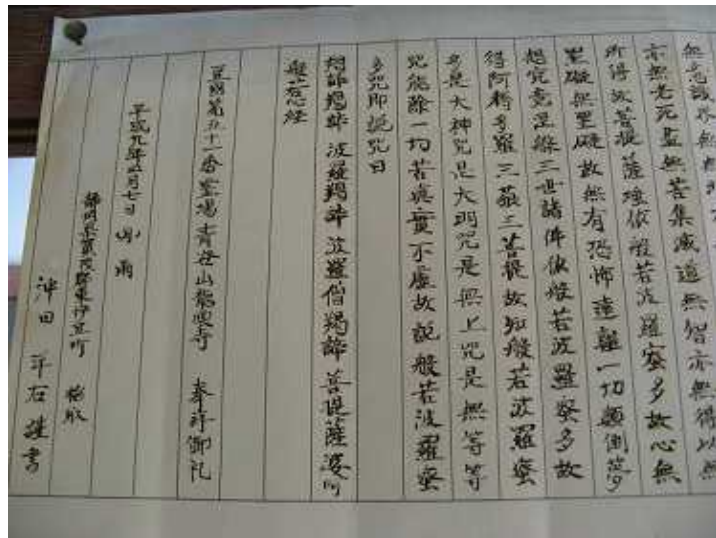 無意識界無無明
亦無老死盡無苦集滅道無智亦無得以無
所得故菩提薩埵依般若波羅蜜多故心無
罣礙無罣礙故無有恐怖遠離一切顛倒夢
想究竟涅槃三世諸佛依般若波羅蜜多故
得阿耨多羅三藐三菩提故知般若波羅蜜
多是大神咒是大明咒是無上咒是無等等
咒能除一切苦真實不虛故説般若波羅蜜
多咒即説咒曰
羯諦羯諦 波羅羯諦 波羅僧羯諦 菩提薩婆訶
般若心経
豆國第五十一番霊場 青谷山龍雲寺 奉拝御礼
平成九年五月七日 雨
静岡県賀茂郡東伊豆町 稲取
沖田 謹書